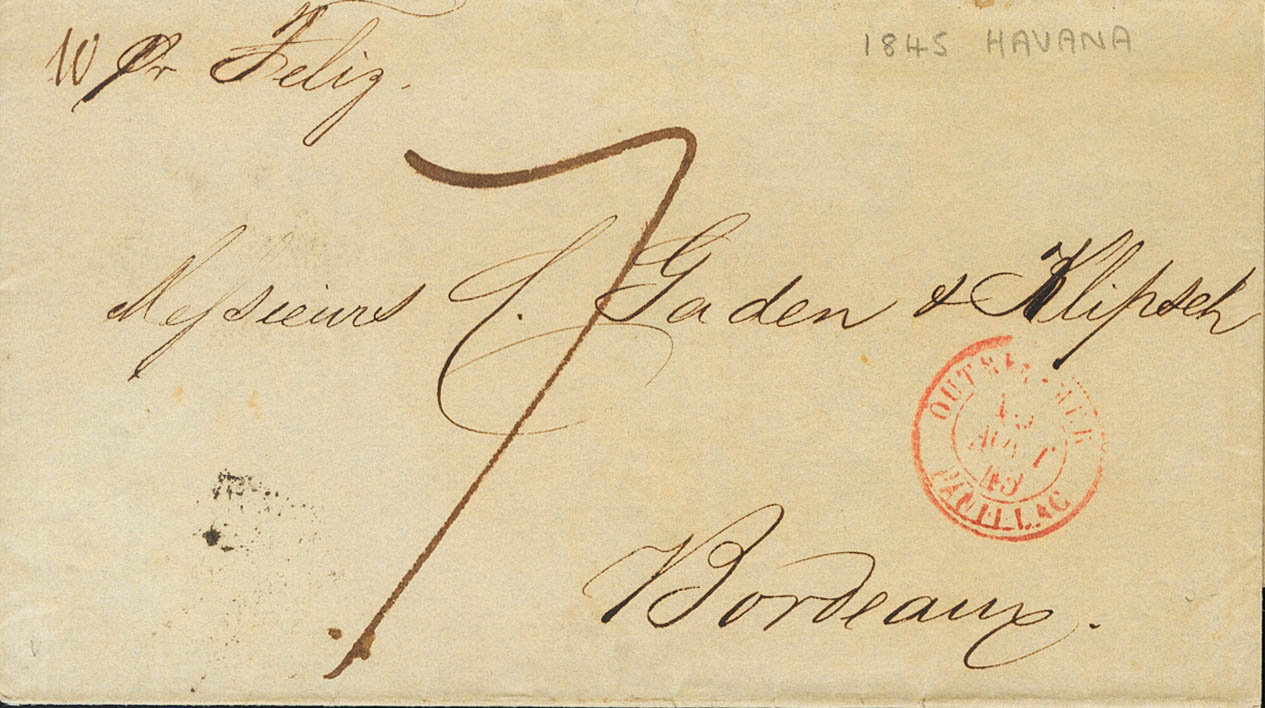 10 Pr Feliz.
1845 HAVANA
7
Messieurs C. Gaden & Klipsch
OUTRE-MER
AOUT
45
PAUILLAC
Bordeaux.